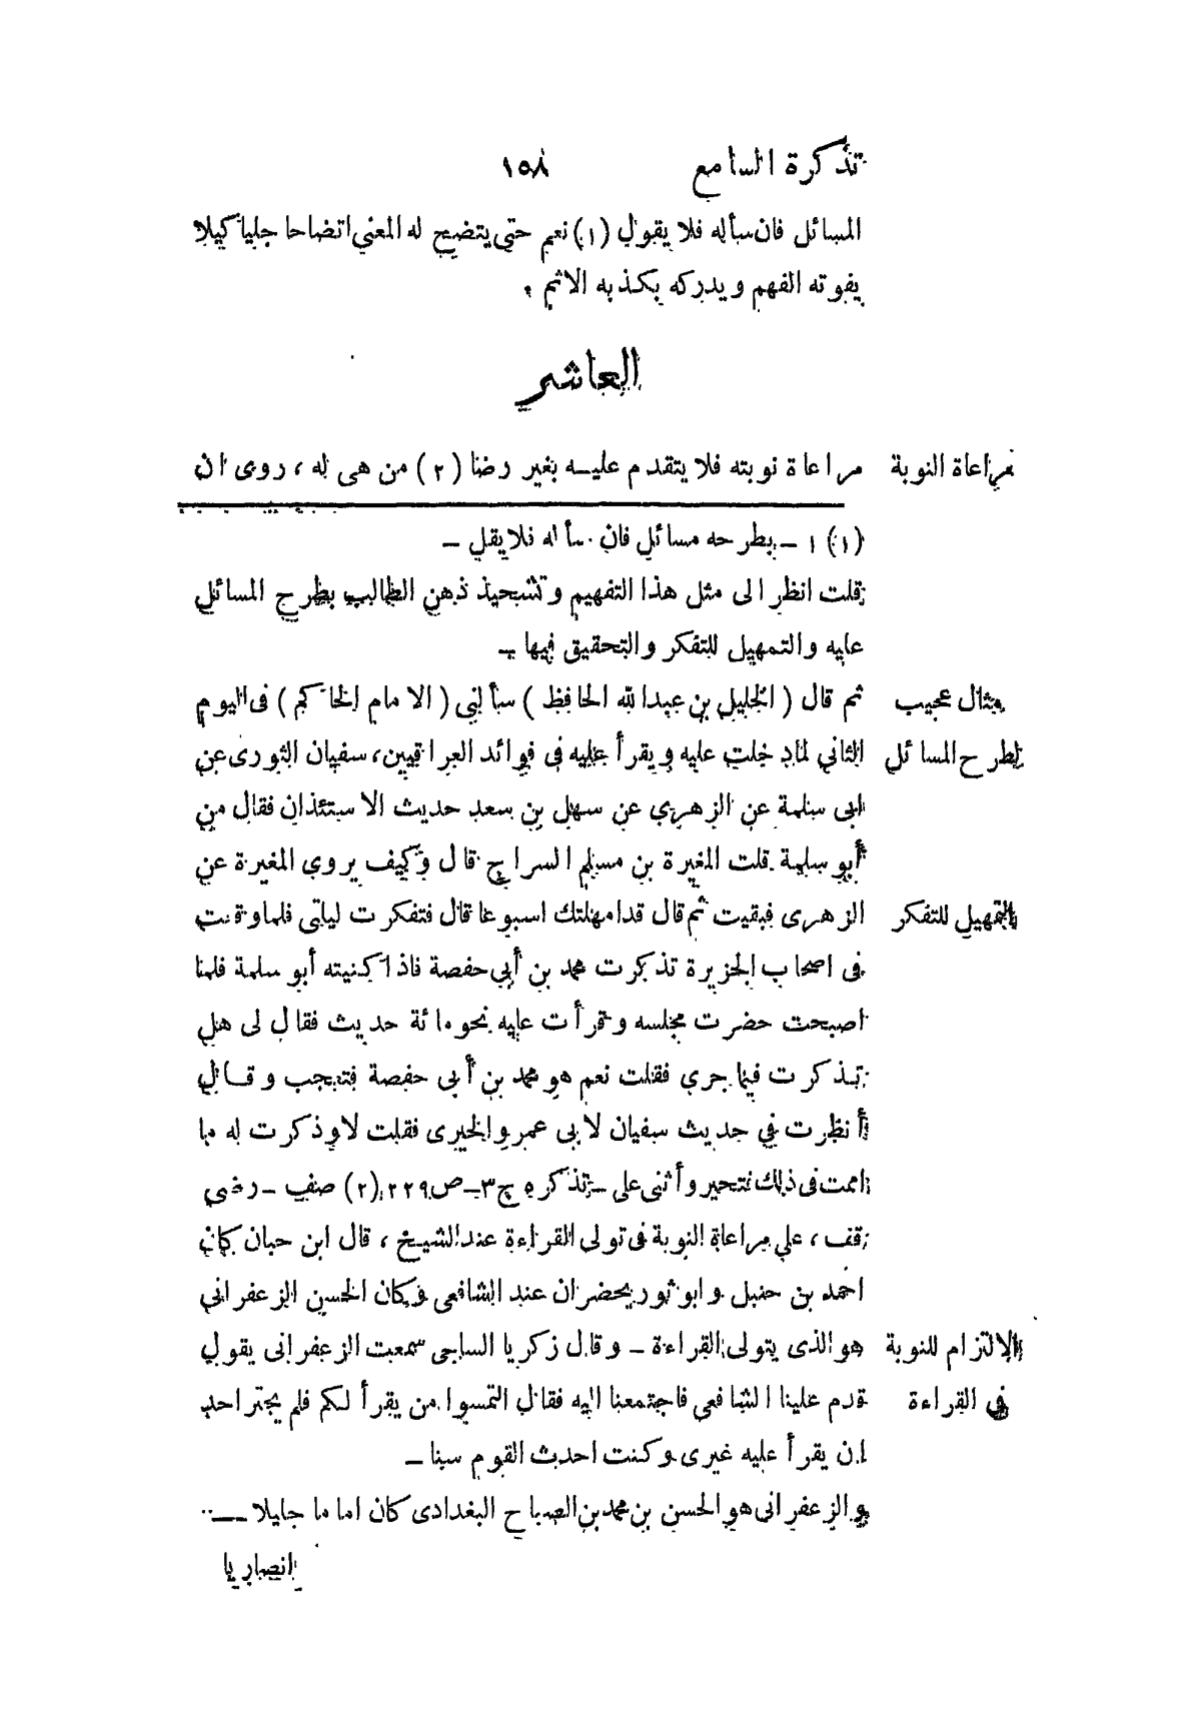 تذكرة السامع ١٥٨
المسائل فان سأله فلا يقول (١) نعم حتى يتضح له المعنى اتضاحا جليا كيلا
يفوته الفهم ويدركه بكذبه الاثم .
العاشر
مراعاة النوبة
مراعاة نوبته فلا يتقدم عليه بغير رضا (٢) من هى له ، روى ان
(١) ١ - بطرحه مسائل فان سأله فلا يقل -
قلت انظر الى مثل هذا التفهيم وتشحيذ ذهن الطالب بطرح المسائل
عليه والتمهيل للتفكر والتحقيق فيها -
مثال عجيب
ثم قال (الخليل بن عبدالله الحافظ) سألنى (الامام الحاكم) فى اليوم
لطرح المسائل
الثانى لما دخلت عليه ويقرأ عليه فى فوائد العراقيين، سفيان الثورى عن
ابى سلمة عن الزهرى عن سهل بن سعد حديث الاستئذان فقال من
أبو سلمة قلت المغيرة بن مسلم السراج قال وكيف يروى المغيرة عن
التمهيل للتفكر
الزهرى فبقيت ثم قال قد امهلتك اسبوعا قال فتفكرت ليلتى فلما وقعت
فى اصحاب الجزيرة تذكرت محمد بن أبى حفصة فاذا كنيته أبو سلمة فلما
اصبحت حضرت مجلسه وقرأت عليه نحو مائة حديث فقال لى هل
تذكرت فيما جرى فقلت نعم هو محمد بن أبى حفصة فتعجب وقال
أنظرت في حديث سفيان لابى عمرو الحيرى فقلت لا وذكرت له ما
اممت فى ذلك فتحير وأثنى على - تذكره ج ٣ - ص ٢٢٩ (٢) صف - رضى
قف ، على مراعاة النوبة فى تولى القراءة عند الشيخ ، قال ابن حبان كان
احمد بن حنبل وابو ثور يحضران عند الشافعى وكان الحسين الزعفرانى
الالتزام للنوبة
هو الذى يتولى القراءة - وقال زكريا الساجى سمعت الزعفرانى يقول
فى القراءة
قدم علينا الشافعى فاجتمعنا اليه فقال التمسوا من يقرأ لكم فلم يجتر احد
ان يقرأ عليه غيرى وكنت احدث القوم سنا -
والزعفرانى هو الحسن بن محمد بن الصباح البغدادى كان اماما جليلا -
انصاريا